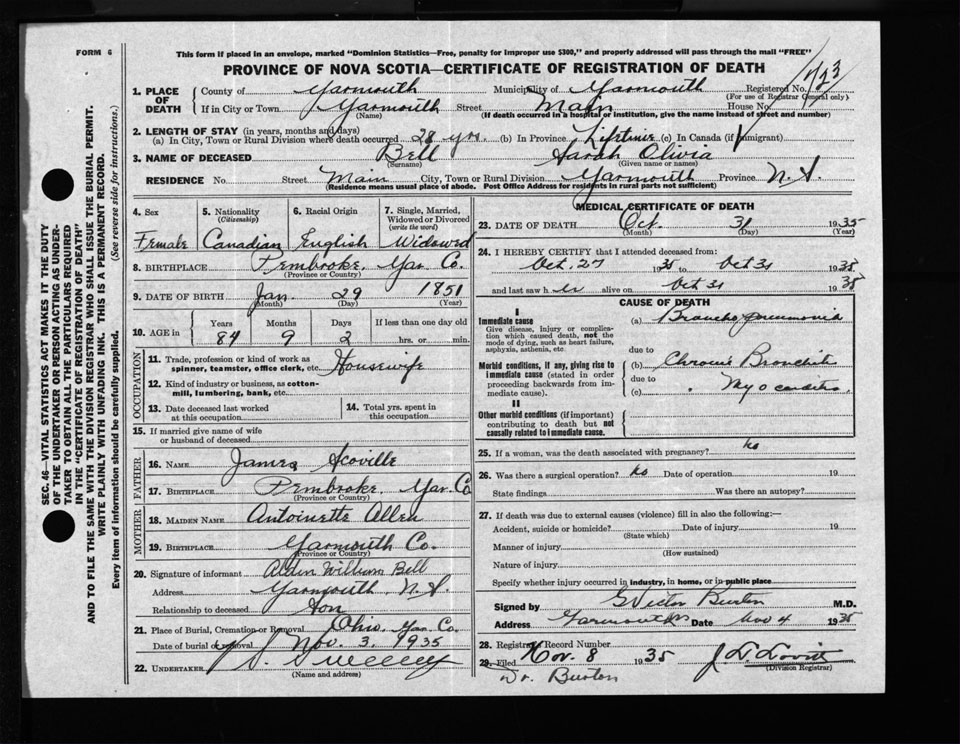 FORM 6
This form if placed in an envelope, marked "Dominion Statistics—Free, penalty for improper use $300," and properly addressed will pass through the mail "FREE"
PROVINCE OF NOVA SCOTIA—CERTIFICATE OF REGISTRATION OF DEATH
1. PLACE OF DEATH County of Yarmouth Municipality of Yarmouth Registered No.
(For use of Registrar General only)
If in City or Town Yarmouth Street Main House No.
(Name) (If death occurred in a hospital or institution, give the name instead of street and number)
2. LENGTH OF STAY (in years, months and days)
(a) In City, Town or Rural Division where death occurred 28 yrs. (b) In Province Lifetime (c) In Canada (if immigrant)
3. NAME OF DECEASED Bell Sarah Olivia
(Surname) (Given name or names)
RESIDENCE No. Street Main City, Town or Rural Division Yarmouth Province N.S.
(Residence means usual place of abode. Post Office Address for residents in rural parts not sufficient)
4. Sex 5. Nationality (Citizenship) 6. Racial Origin 7. Single, Married, Widowed or Divorced (write the word)
Female Canadian English Widowed
8. BIRTHPLACE Pembroke, Yar Co.
(Province or Country)
9. DATE OF BIRTH Jan. 29 1851
(Month) (Day) (Year)
10. AGE in Years Months Days If less than one day old
84 9 2 hrs. or min.
OCCUPATION
11. Trade, profession or kind of work as spinner, teamster, office clerk, etc. Housewife
12. Kind of industry or business, as cotton-mill, lumbering, bank, etc.
13. Date deceased last worked at this occupation
14. Total yrs. spent in this occupation
15. If married give name of wife or husband of deceased
FATHER
16. NAME James Scoville
17. BIRTHPLACE Pembroke, Yar. Co
(Province or Country)
MOTHER
18. MAIDEN NAME Antoinette Allen
19. BIRTHPLACE Yarmouth Co.
(Province or Country)
20. Signature of informant Alden William Bell
Address Yarmouth, N.S.
Relationship to deceased Son
21. Place of Burial, Cremation or Removal Ohio, Yar. Co.
Date of burial or removal Nov. 3, 1935
22. UNDERTAKER Sweeney
(Name and address)
MEDICAL CERTIFICATE OF DEATH
23. DATE OF DEATH Oct. 31 1935
(Month) (Day) (Year)
24. I HEREBY CERTIFY that I attended deceased from:
Oct. 27 1935 to Oct 31 1935
and last saw her alive on Oct 31 1935
CAUSE OF DEATH
I
Immediate cause
Give disease, injury or complication which caused death, not the mode of dying, such as heart failure, asphyxia, asthenia, etc.
(a) Broncho pneumonia
due to
Morbid conditions, if any, giving rise to immediate cause (stated in order proceeding backwards from immediate cause).
(b) Chronic Bronchitis
due to
(c) Myocarditis
II
Other morbid conditions (if important) contributing to death but not causally related to immediate cause.
25. If a woman, was the death associated with pregnancy? no
26. Was there a surgical operation? no Date of operation 19
State findings Was there an autopsy?
27. If death was due to external causes (violence) fill in also the following:—
Accident, suicide or homicide? Date of injury 19
(State which)
Manner of injury
(How sustained)
Nature of injury
Specify whether injury occurred in industry, in home, or in public place
Signed by G Victor Burton M.D.
Address Yarmouth NS Date Nov 4 1935
28. Registrar's Record Number
29. Filed Nov. 8 1935
(Division Registrar)
Dr. Burton
SEC. 46—VITAL STATISTICS ACT MAKES IT THE DUTY
OF THE UNDERTAKER OR PERSON ACTING AS UNDER-
TAKER TO OBTAIN ALL THE PARTICULARS REQUIRED
IN THE "CERTIFICATE OF REGISTRATION OF DEATH"
AND TO FILE THE SAME WITH THE DIVISION REGISTRAR WHO SHALL ISSUE THE BURIAL PERMIT.
WRITE PLAINLY WITH UNFADING INK. THIS IS A PERMANENT RECORD.
Every item of information should be carefully supplied. (See reverse side for instructions.)